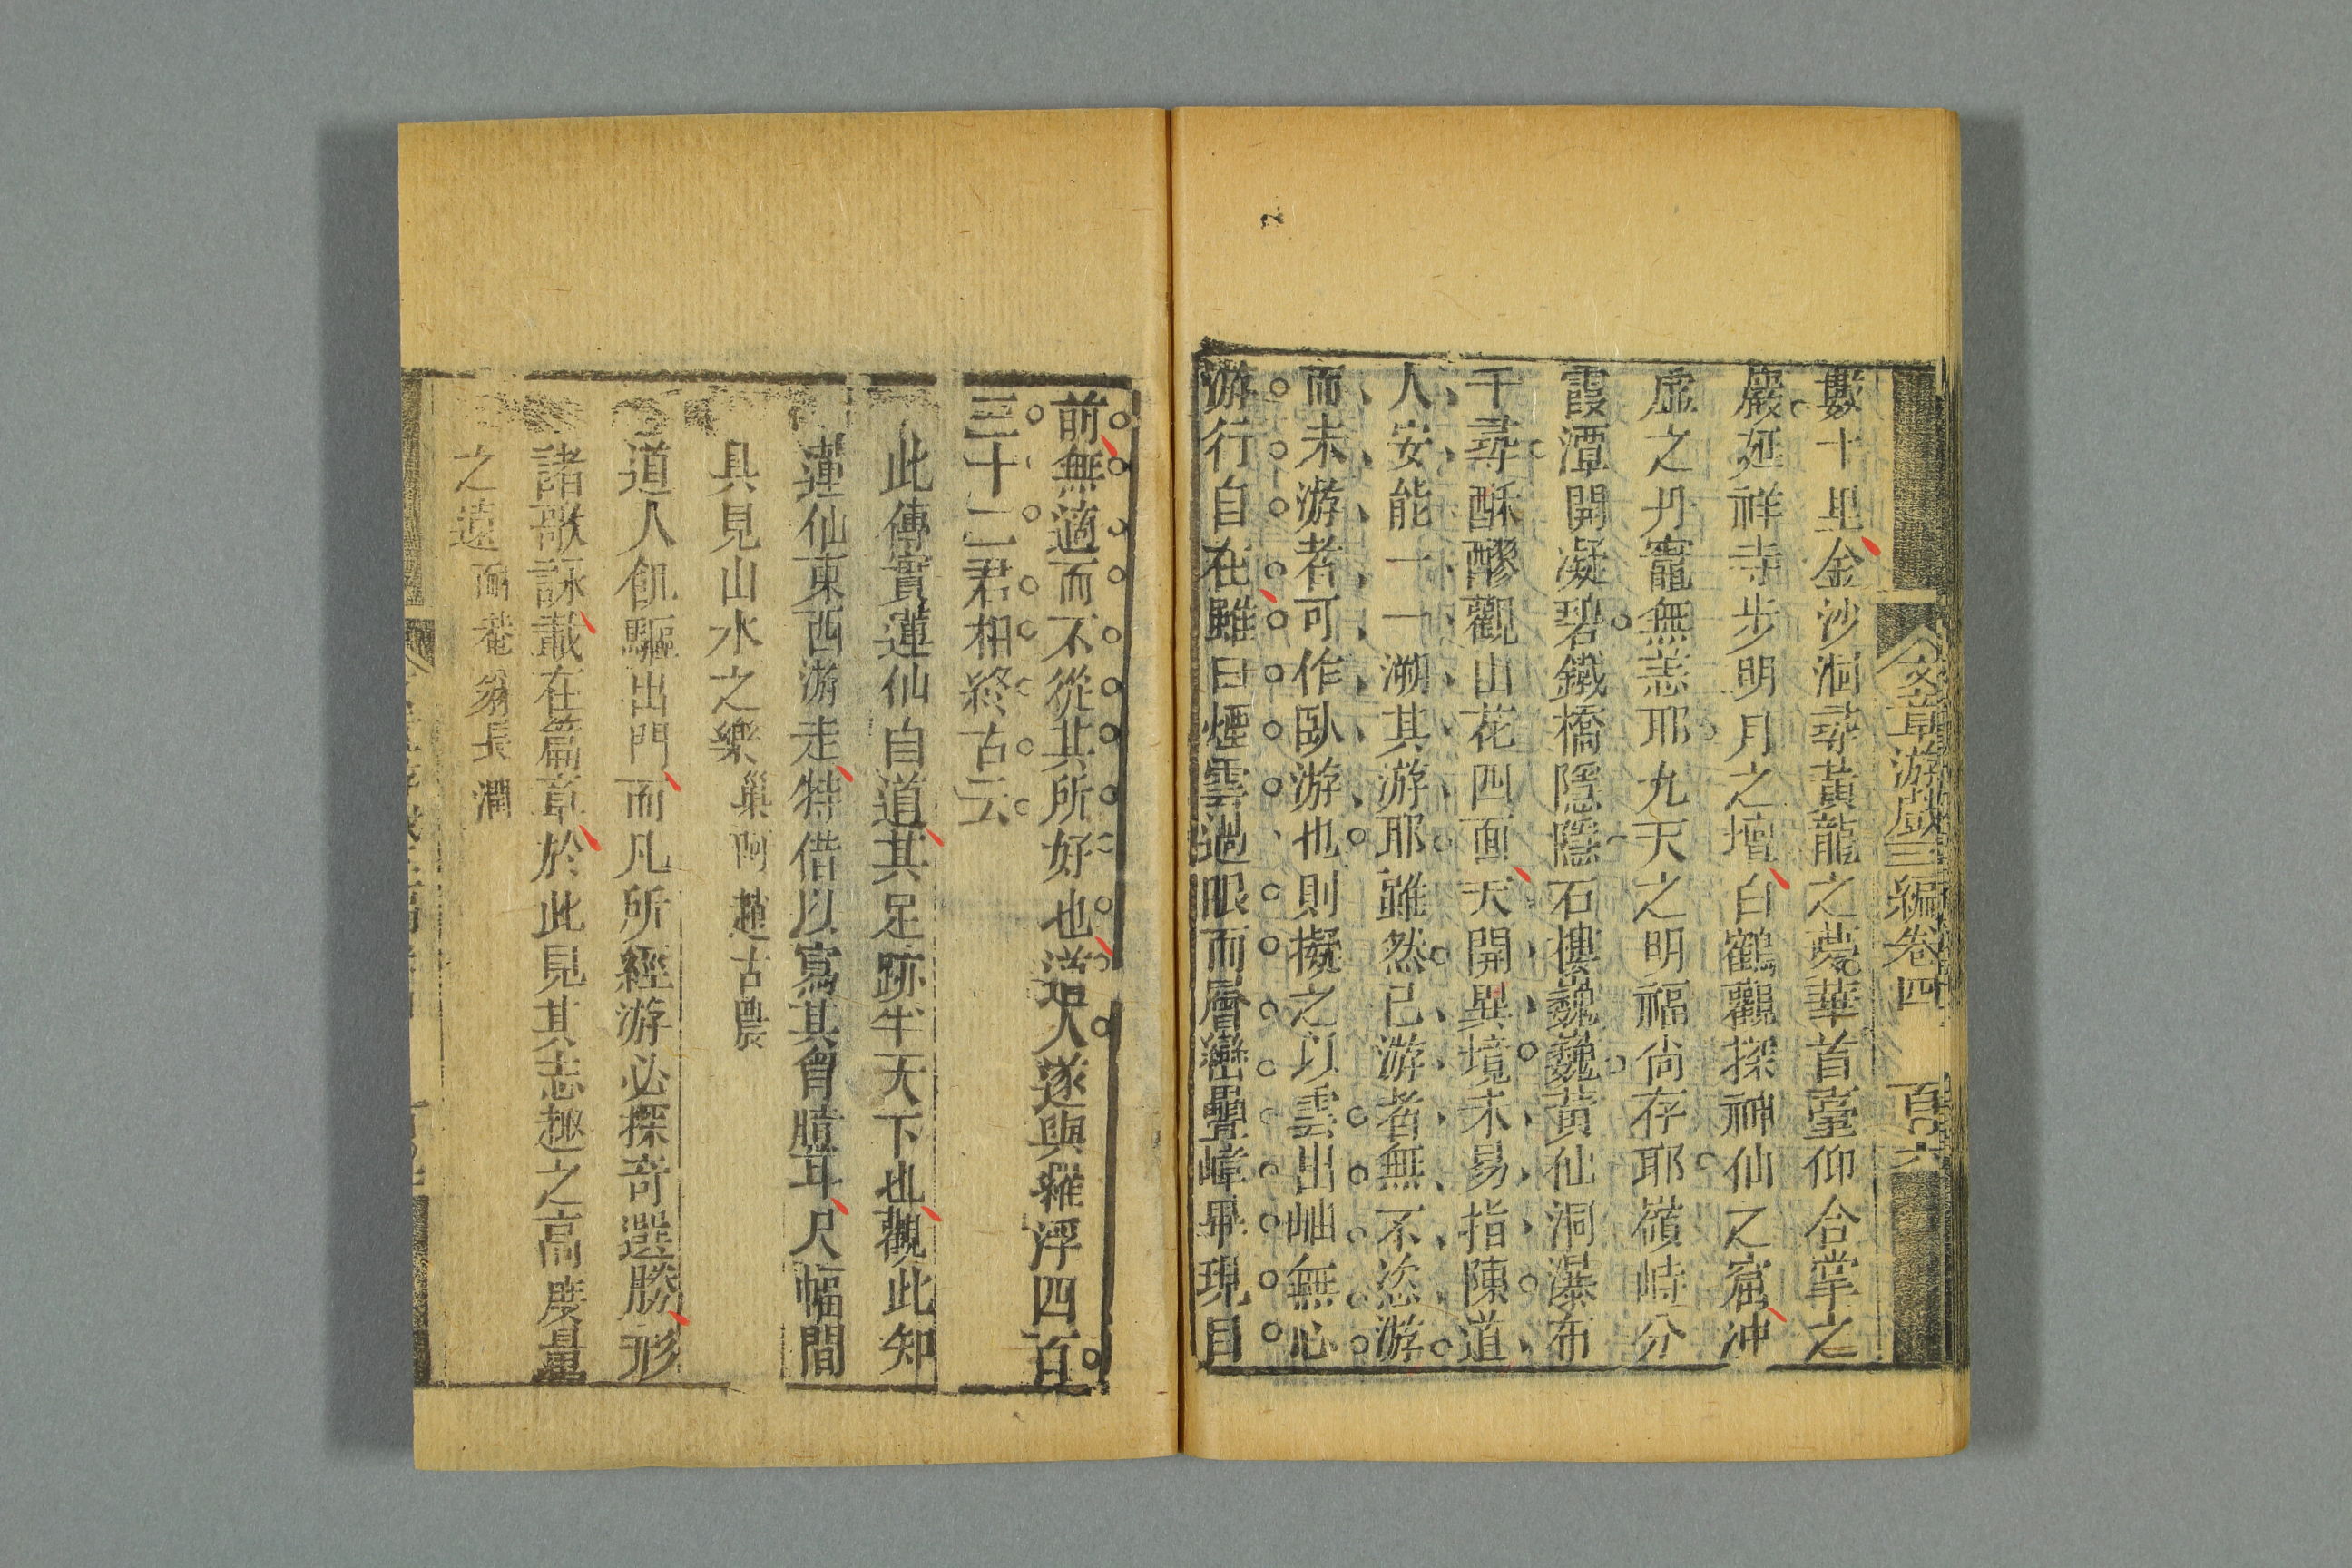 數十里金沙洞尋黃龍之蕘華首臺仰合掌之
巖延祥寺步明月之壇白鶴觀探神仙之窟沖
虛之丹竈無恙耶九天之明福尚存耶嶺峙分
霞潭開凝碧鐵橋隱隱石樓巍巍黃仙洞瀑布
千尋酥醪觀山花四面天開異境未易指陳道
人安能一一溯其游耶雖然已游者無不恣游
而未游者可作臥游也則擬之以雲出岫無心
游行自在雖曰煙雲過眼而層巒疊嶂畢現目
文章游戲三編卷四 百六
前無適而不從其所好也道人遂與羅浮四百
三十二君相終古云
此傳實蓮仙自道其足跡半天下也觀此知
蓮仙東西游走特借以寫其胷臆耳尺幅間
具見山水之樂 巢阿趙古農
道人飢驅出門而凡所經游必探奇選勝形
諸歌詠載在篇章於此見其志趣之高度量
之遠 耐菴翁長潤